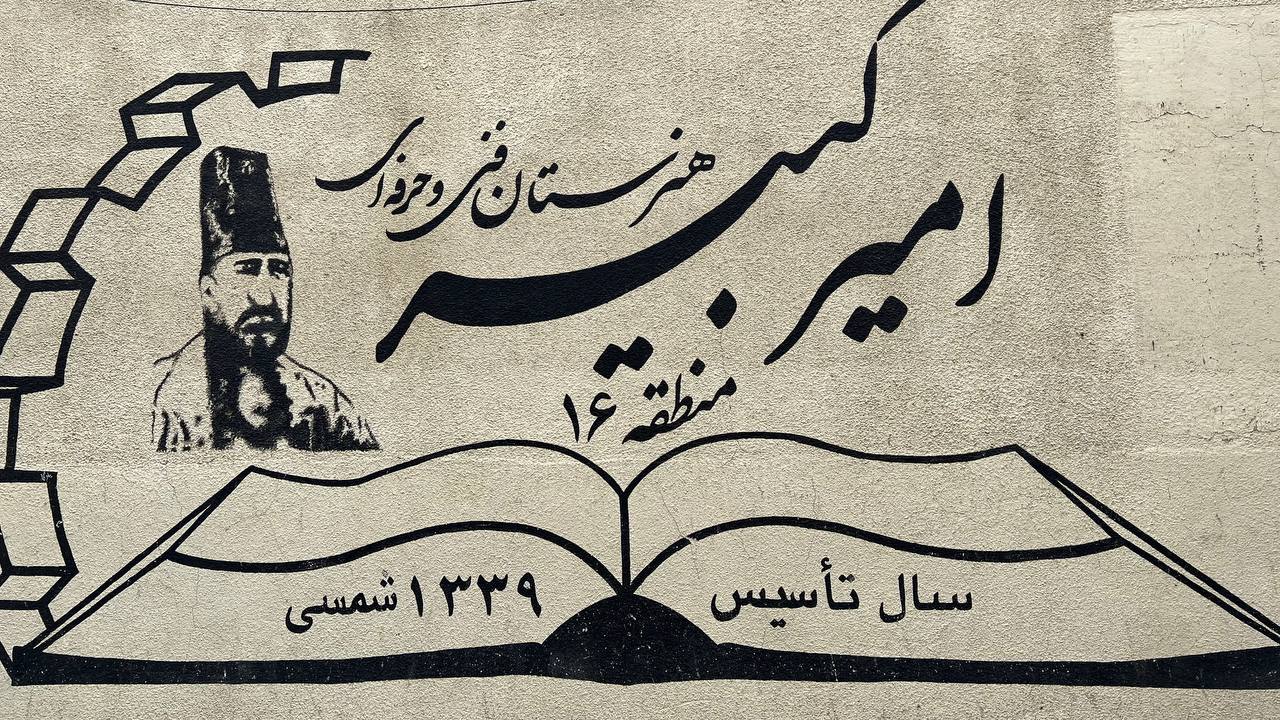 هنرستان فنی و حرفه ای
امیر کبیر
منطقه ۱۶
سال تأسیس ۱۳۳۹ شمسی